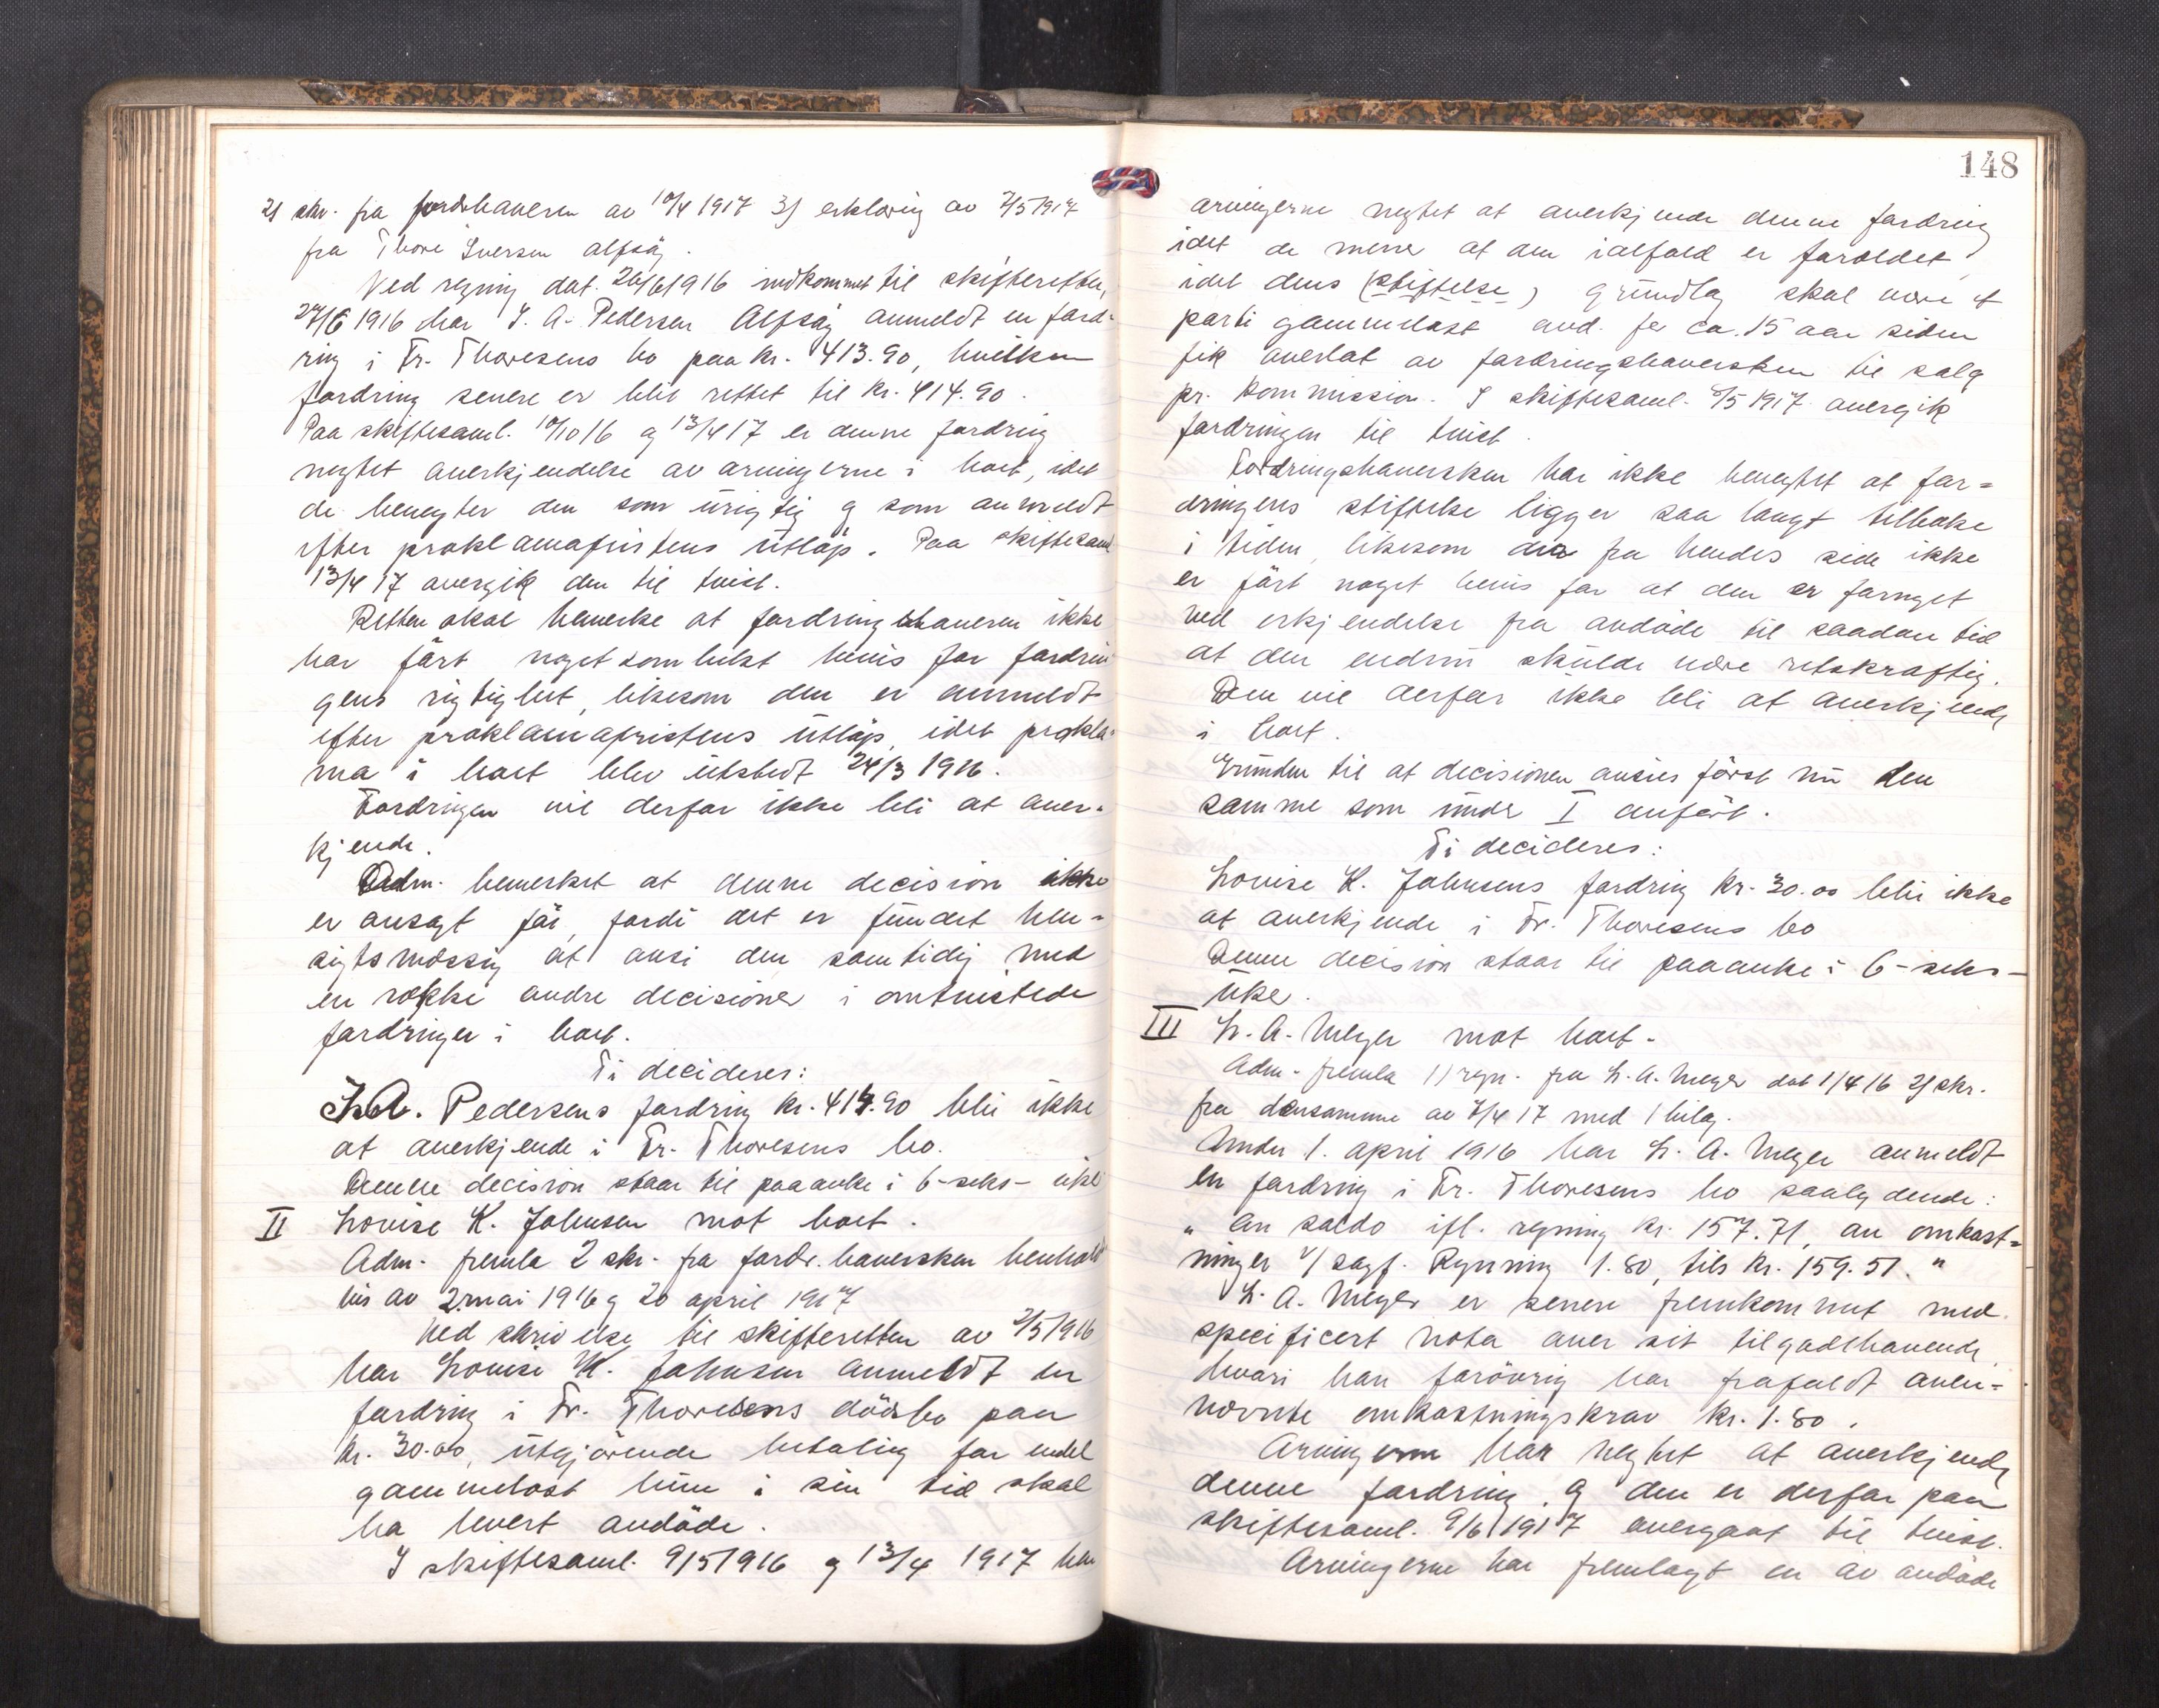 2) skr. fra fordr.haveren av 10/4 1917 3) erklæring av 7/5 1917
fra Thore Iversen Alfsåg.
Ved regning dat. 26/6 1916 indkommet til skifteretten,
27/6 1916 har J. A. Pedersen Alfsåg anmeldt en ford-
ring i Fr. Thoresens bo paa kr. 413.90, hvilken
fordring senere er blit rettet til kr. 414.90.
Paa skiftesaml. 10/10 16 og 13/4 17 er denne fordring
negtet anerkjendelse av arvingerne i boet, idet
de benegter den som urigtig og som anmeldt
efter proklamafristens utløp. Paa skiftesaml
13/4 17 overgik den til tvist.
Retten skal bemerke at fordringshaveren ikke
har ført noget somhelst bevis for fordrin
gens rigtighet, likesom den er anmeldt
efter proklamafristens utløp, idet prokla-
ma i boet blev utstedt 24/3 1916.
Fordringen vil derfor ikke bli at aner-
kjende.
Adm. bemerket at denne decision ikke
er avsagt før, fordi det er fundet hen-
sigtsmæssig at avsi den samtidig med
en række andre decisioner i omtvistede
fordringer i boet.
Ti decideres:
J.A. Pedersens fordring kr. 414.90 blir ikke
at anerkjende i Fr. Thoresens bo.
Denne decision staar til paaanke i 6-seks- uker
II Lovise K. Johnsen mot boet.
Adm. fremla 2 skr. fra fordr.haversken henholds
vis av 2 mai 1916 og 20 april 1917
Ved skrivelse til skifteretten av 2/5 1916
har Lovise K. Johnsen anmeldt en
fordring i Fr. Thoresens dødsbo paa
kr. 30.00, utgjørende betaling for endel
gammelost hun i sin tid skal
ha levert avdøde.
I skiftesaml. 9/5 1916 og 13/4 1917 har
148
arvingerne negtet at anerkjende denne fordring
idet de mener at den ialfald er foroldet,
idet dens (stiftelse) grundlag skal være et
parti gammelost avd. for ca. 15 aar siden
fik overlat av fordringshaversken til salg
pr. kommission. I skiftesaml. /5 1917 overgik
fordringen til tvist.
Fordringshaversken har ikke benegtet at for=
dringens stiftelse ligger saa langt tilbake
i tiden, likesom der fra hendes side ikke
er ført noget bevis for at den er fornyet
ved erkjendelse fra avdøde til saadan tid
at den endnu skulde være retskraftig.
Den vil derfor ikke bli at anerkjende
i boet.
Grunden til at decisionen avsies først nu den
samme som under I anført.
Ti decideres:
Lovise K. Johnsens fordring kr. 30.00 blir ikke
at anerkjende i Fr. Thoresens bo
Denne decision staar til paaanke i 6-seks-
uker.
III L. A. Meyer mot boet.
Adm. fremla 1) regn. fra L. A. Meyer dat 1/4 16 2) skr.
fra densamme av 7/4 17 med 1 bilag.
Under 1. april 1916 har L. A. Meyer anmeldt
en fordring i Fr. Thoresens bo saalydende:
" An saldo ifl. regning kr. 157.71, an omkost=
ninger v/ sagf. Rynning 1.80, tils kr. 159.51."
L. A. Meyer er senere fremkommet med
specificert nota over sit tilgodehavende,
hvori han forøvrig har frafaldt oven=
nævnte omkostningskrav kr. 1.80.
Arvingerne har negtet at anerkjende
denne fordring, og den er derfor paa
skiftesaml. 9/6 1917 overgaat til tvist.
Arvingerne har fremlagt en av avdøde